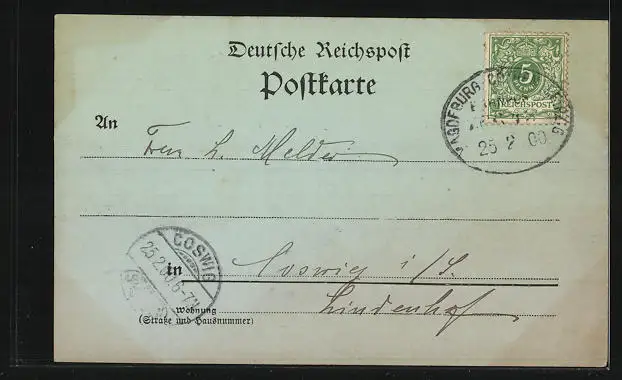 Deutsche Reichspost
Postkarte
5
REICHSPOST
MAGDEBURG
25 2 00
An
L. Melder
COSWIG
25.2.00 6-7N
in Coswig i/S.
Lindenhof
Wohnung
(Straße und Hausnummer)